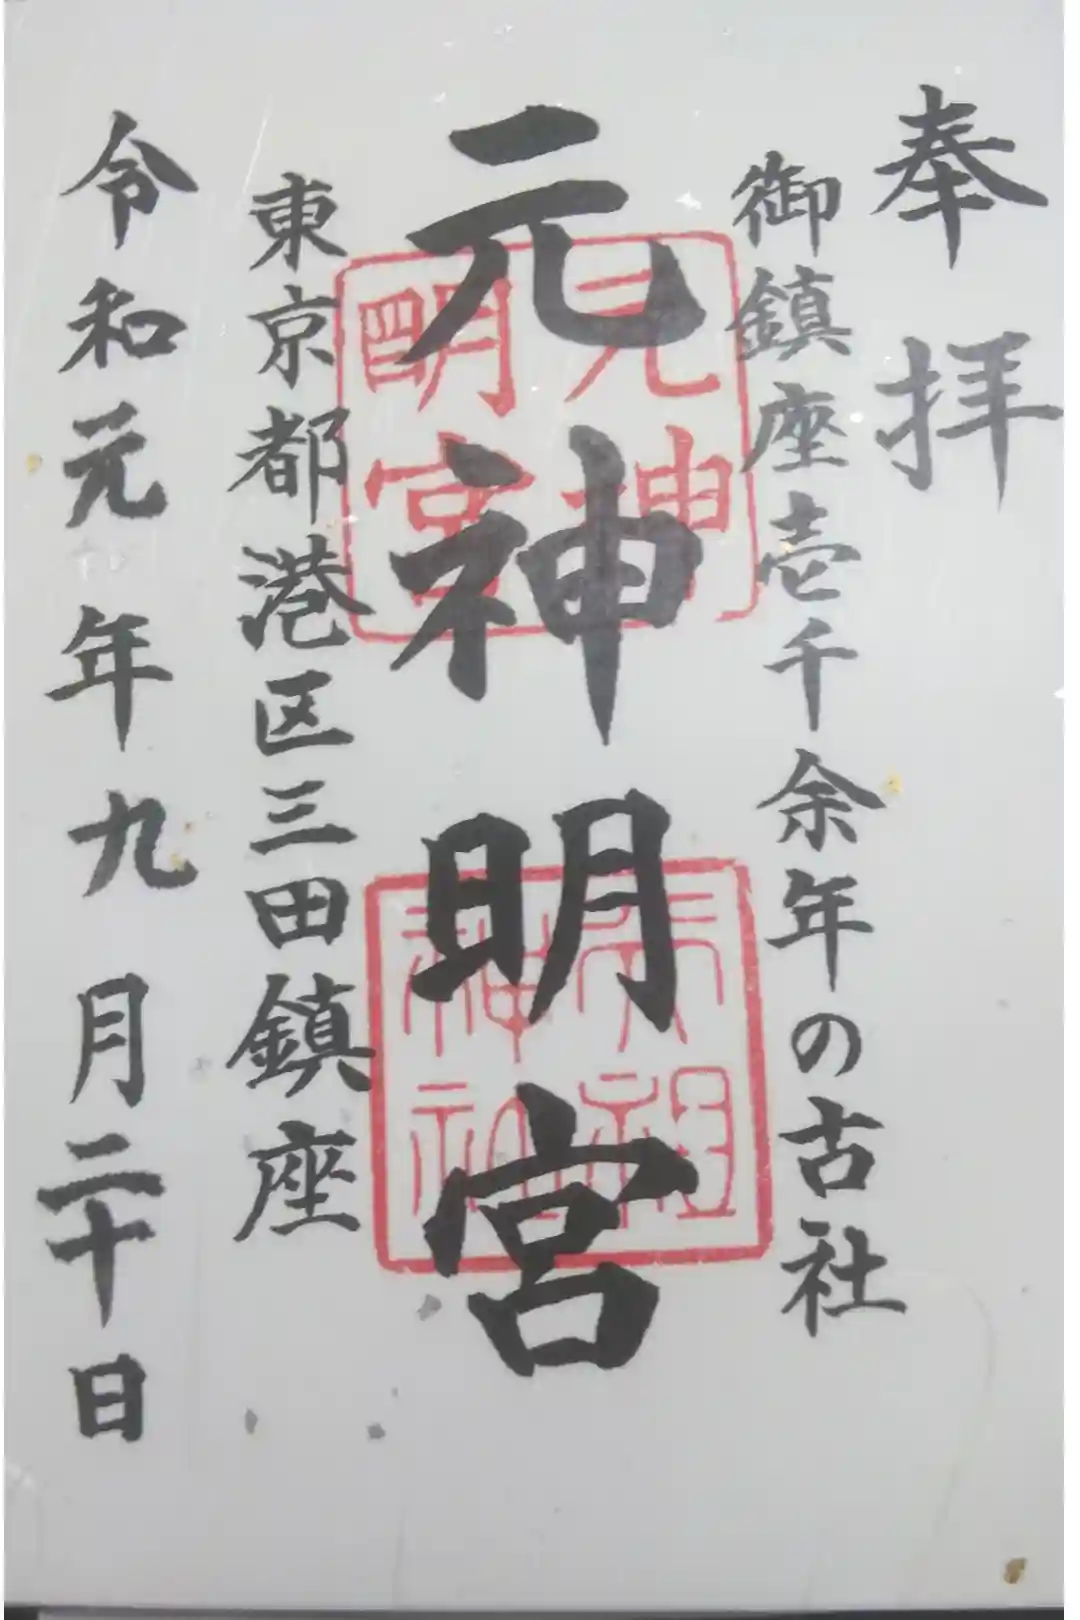 奉拝
御鎮座壱千余年の古社
元神明宮
東京都港区三田鎮座
令和元年九月二十日
元神明宮